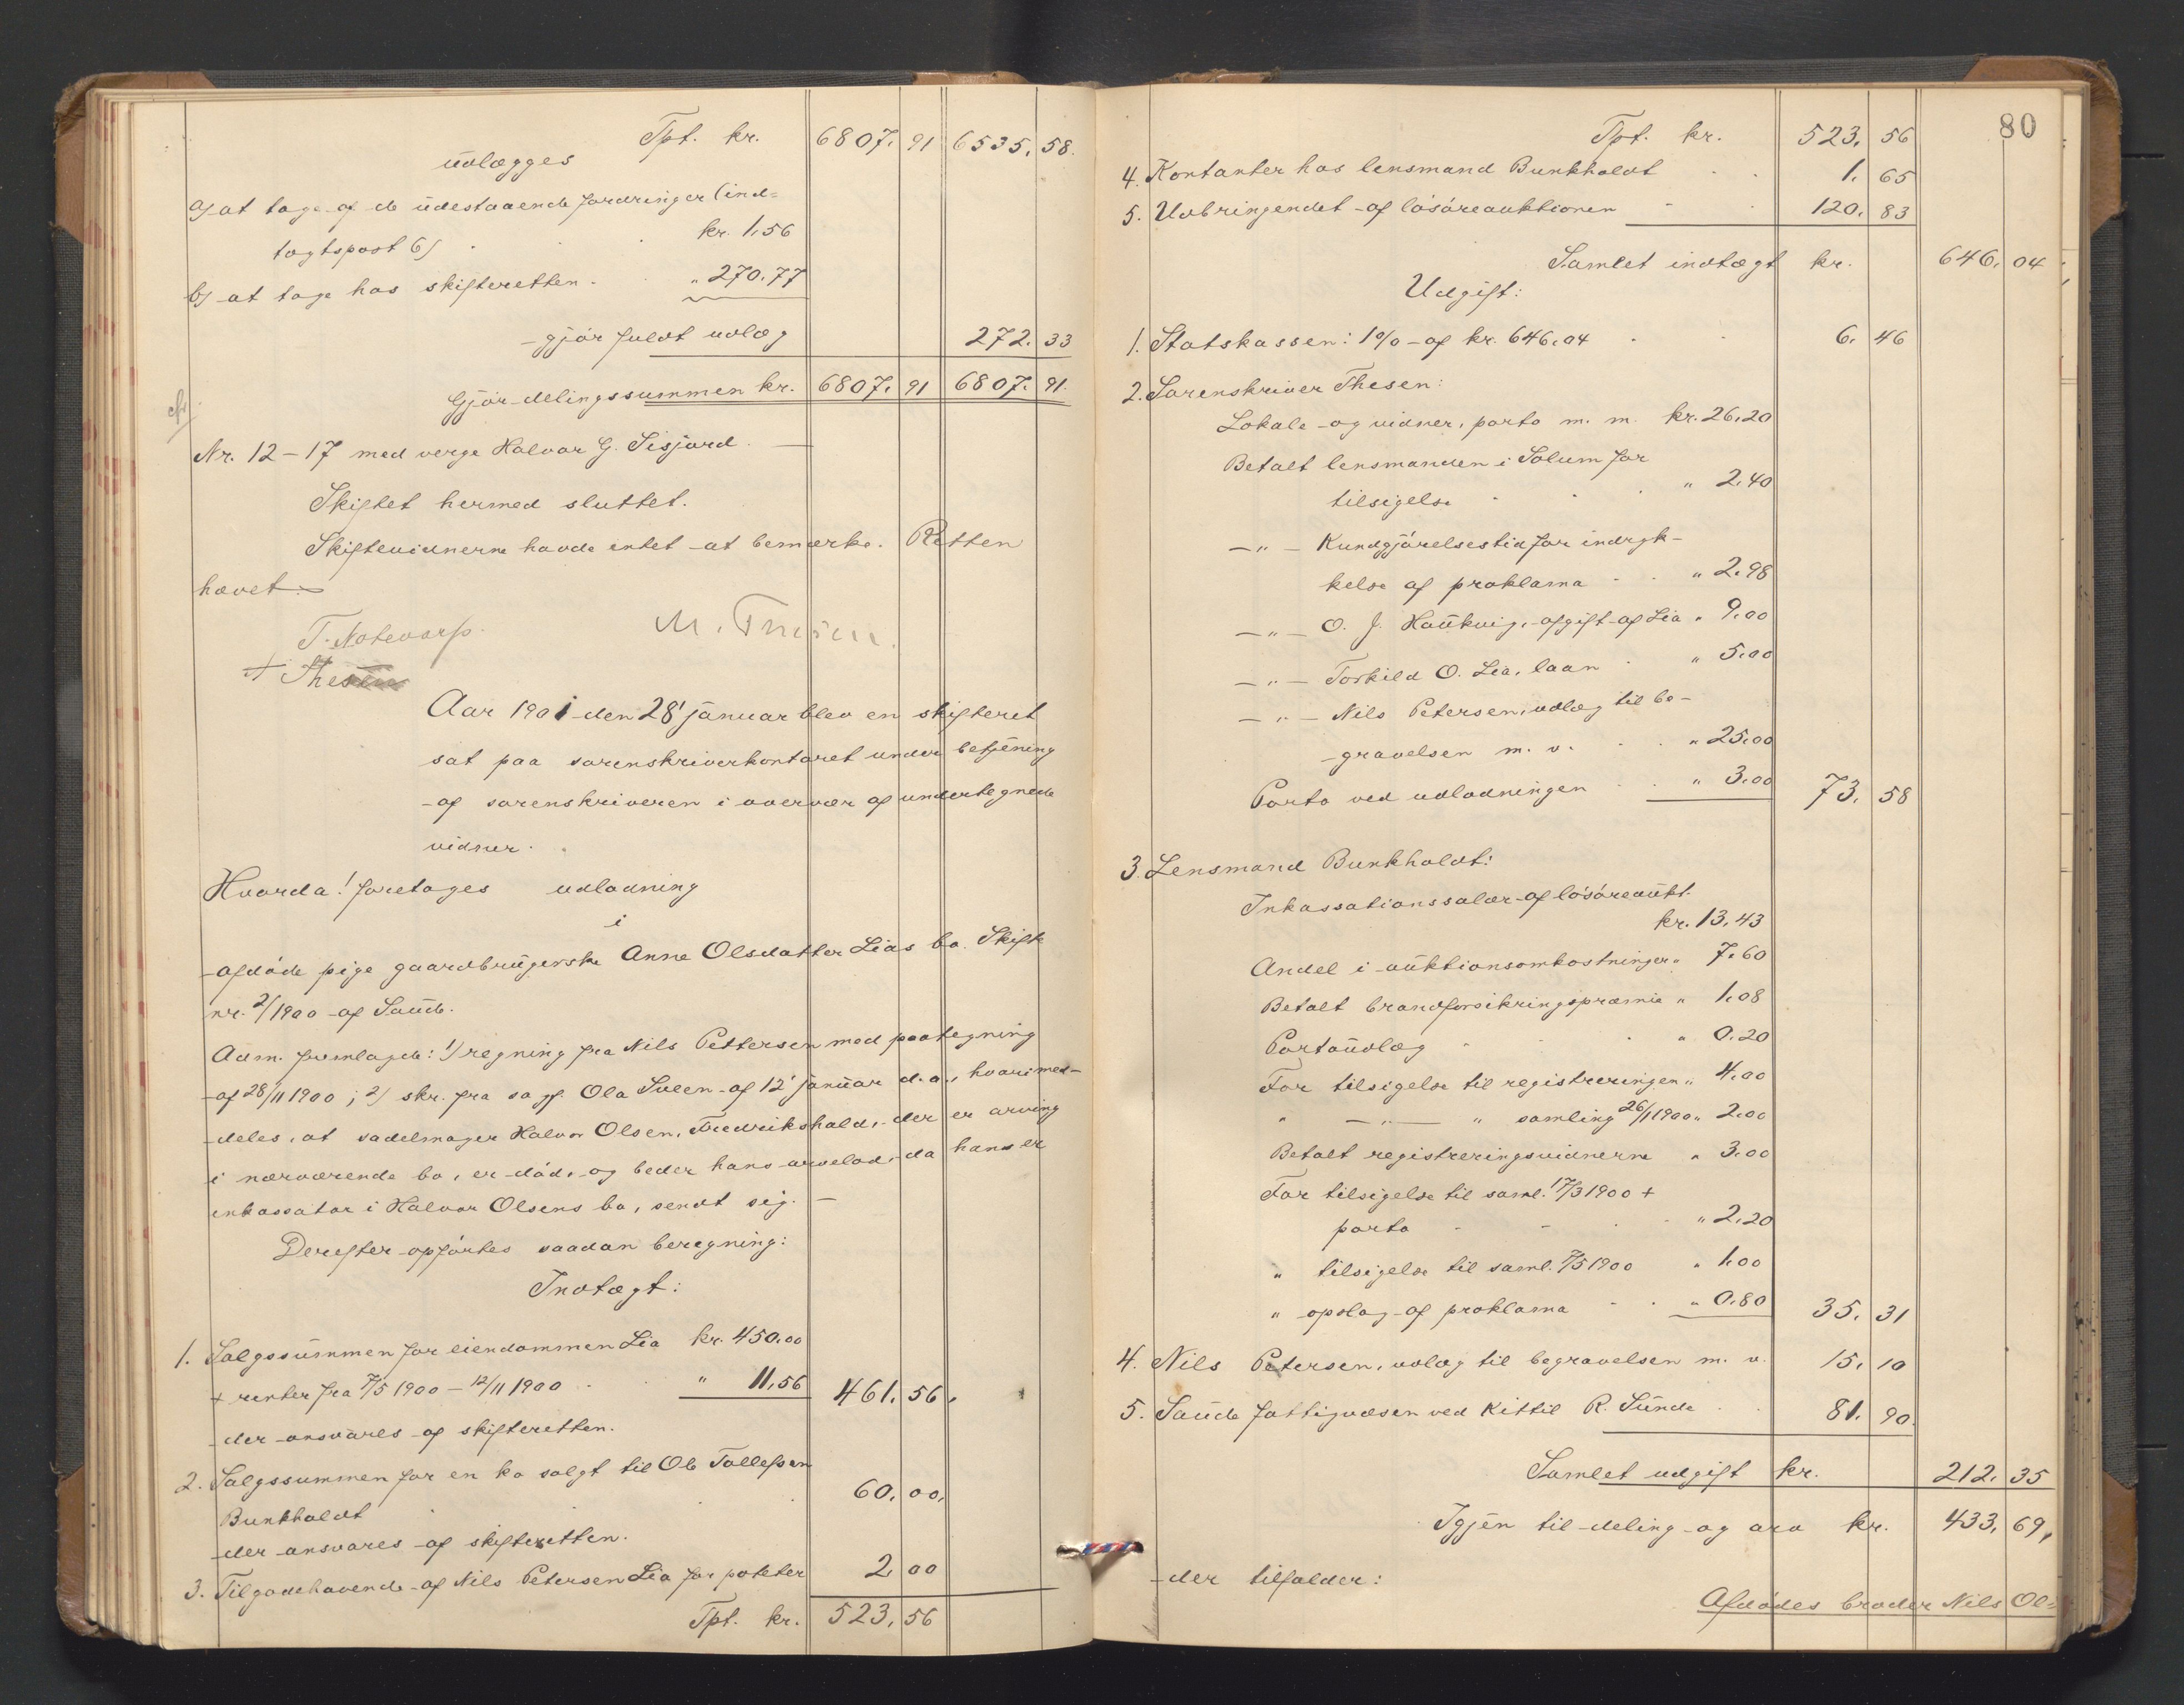 Tpt. kr. 6807. 91 6535. 58.
udlægges
a) at tage af de udestaaende fordringer (ind=
tægtspost 6) kr. 1,56
b) at tage hos skifteretten. " 270.77
gjør fuldt udlæg 272. 33
Gjør delingssummen kr. 6807. 91 6807. 91.
Nr. 12 – 17 med verge Halvor G. Sisjord. —
Skiftet hermed sluttet.
Skiftevidnerne havde intet at bemærke. Retten
hævet.
Aar 1901 den 28' januar blev en skifteret
sat paa sorenskriverkontoret under betjening
af sorenskriveren i overvær af undertegnede
vidner.
Hvorda! foretages udlodning
i
afdøde pige gaardbrugerske Anne Olsdatter Lias bo. Skifte
nr. 2/1900 af Saude.
Adm. fremlagde: 1) regning fra Nils Pettersen med paategning
af 28/11 1900; 2) skr. fra sagf. Ola Sveen af 12' januar d.a., hvori med-
deles, at sadelmager Halvor Olsen, Fredrikshald, der er arving
i nærværende bo, er død, og beder hans arvelod, da han er
inkassator i Halvor Olsens bo, sendt sig. —
Derefter opførtes saadan beregning:
Indtægt:
1. Salgssummen for eiendommen Lia kr. 450.00
+ renter fra 7/5 1900 – 12/11 1900 " 11,56 461. 56.
der ansvares af skifteretten.
2. Salgssummen for en ko solgt til Ole Tollefsen
Bunkholdt 60. 00.
der ansvares af skifteretten.
3. Tilgodehavende af Nils Petersen Lia for poteter 2. 00
Tpt. kr. 523. 56
80
Tpt. kr. 523. 56
4. Kontanter hos lensmand Bunkholdt 1. 65
5. Udbringendet af løsøreauktionen 120. 83
Samlet indtægt kr. 646. 04
Udgift:
1. Statskassen: 1 % af kr. 646.04 6. 46
2. Sorenskriver Thesen:
Lokale og vidner, porto m. m. kr. 26.20
Betalt lensmanden i Solum for
tilsigelse " 2.40
— " — Kundgjørelsestid. for indryk-
kelse af proklama " 2.98
— " — O. J. Haukvig, afgift af Lia " 9.00
— " — Torkild O. Lia, laan " 5.00
— " — Nils Petersen, udlæg til be-
gravelsen m. v. " 25.00
Porto ved udlodningen " 3.00 73. 58
3. Lensmand Bunkholdt:
Inkassationssalær af løsøreaukt.
kr. 13,43
Andel i auktionsomkostninger " 7.60
Betalt brandforsikringspræmie " 1.08
Portoudlæg " 0.20
For tilsigelse til registreringen " 4.00
" — " — " samling 26/1 1900 " 2.00
Betalt registreringsvidnerne " 3.00
For tilsigelse til saml. 17/3 1900 +
porto " 2.20
" tilsigelse til saml. 7/5 1900 " 1.00
" opslag af proklama " 0.80 35. 31
4. Nils Petersen, udlæg til begravelsen m. v. 15. 10
5. Saude fattigvæsen ved Kittil R. Sunde 81. 90.
Samlet udgift kr. 212. 35
Igjen til deling og arv kr. 433. 69,
der tilfalder:
Afdødes broder Nils Ol=